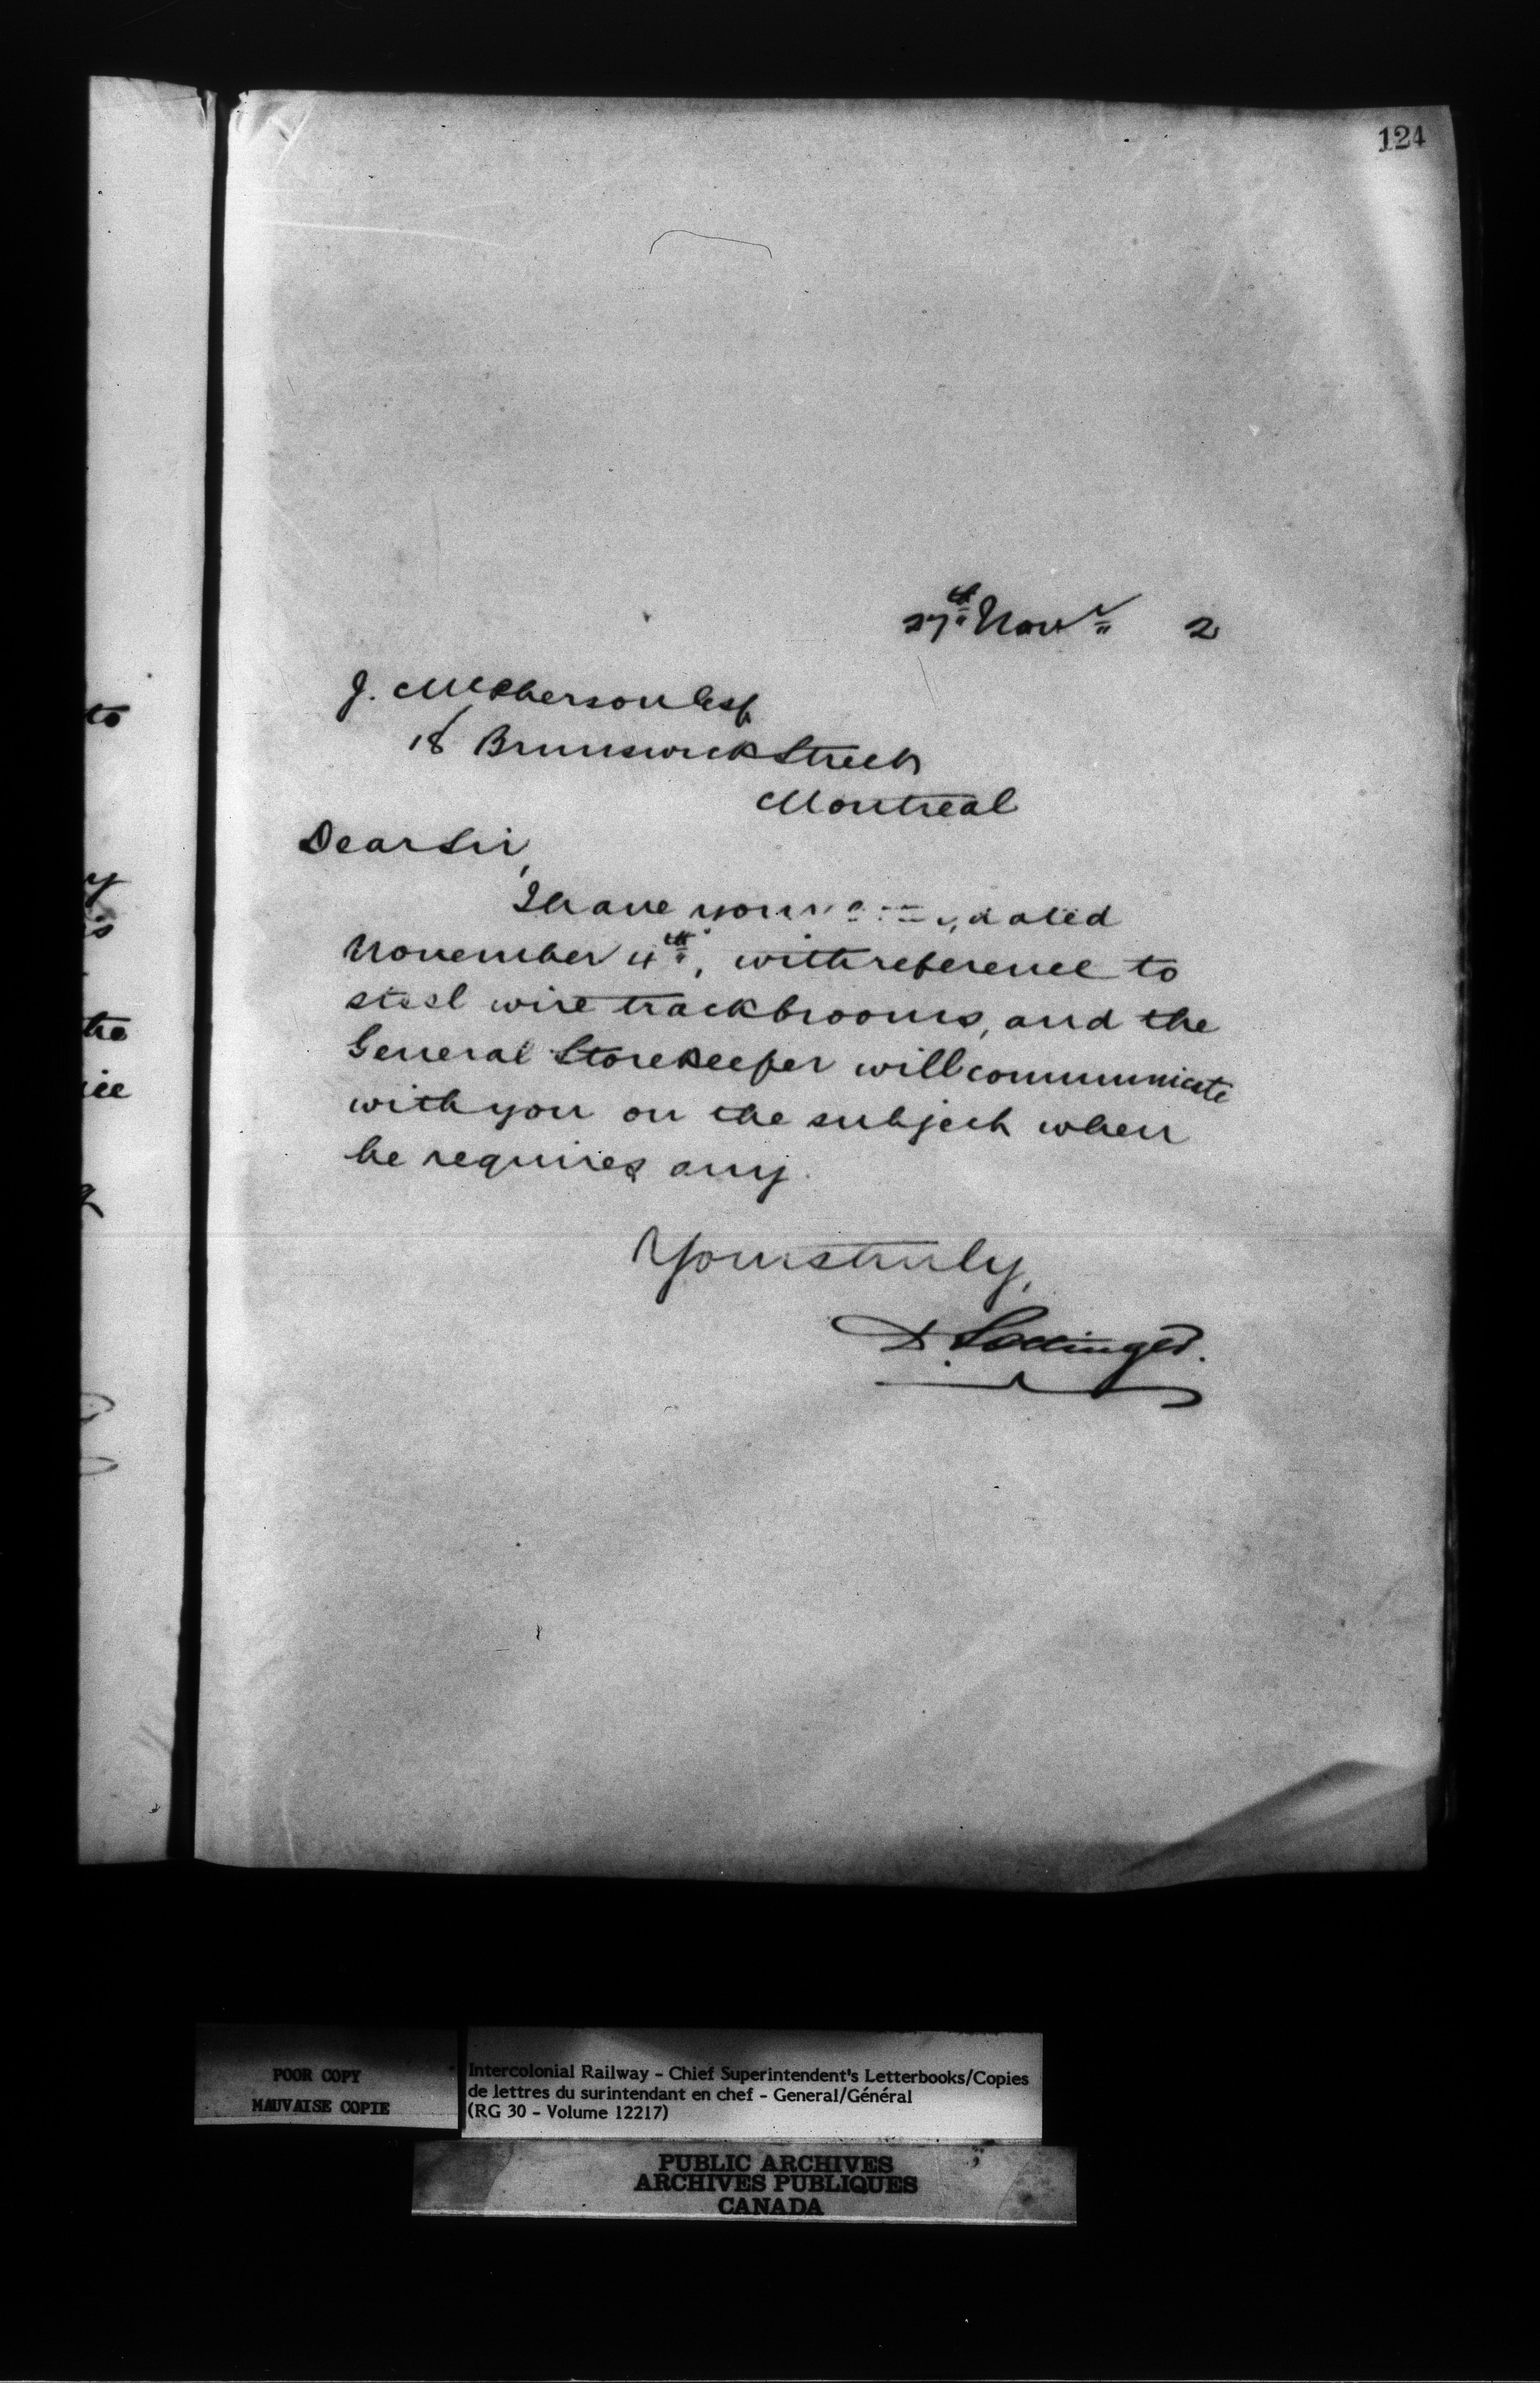 124
27th Novr 2
J. McPherson Esq
18 Brunswick Street
Montreal
Dear Sir,
I have your dated
November 4th, with reference to
steel wire track brooms, and the
General Storekeeper will communicate
with you on the subject when
he requires any.
Yours truly,
D. Pottinger.
to
y
is
the
ice
POOR COPY
MAUVAISE COPIE
Intercolonial Railway - Chief Superintendent's Letterbooks/Copies
de lettres du surintendant en chef - General/Général
(RG 30 - Volume 12217)
PUBLIC ARCHIVES
ARCHIVES PUBLIQUES
CANADA